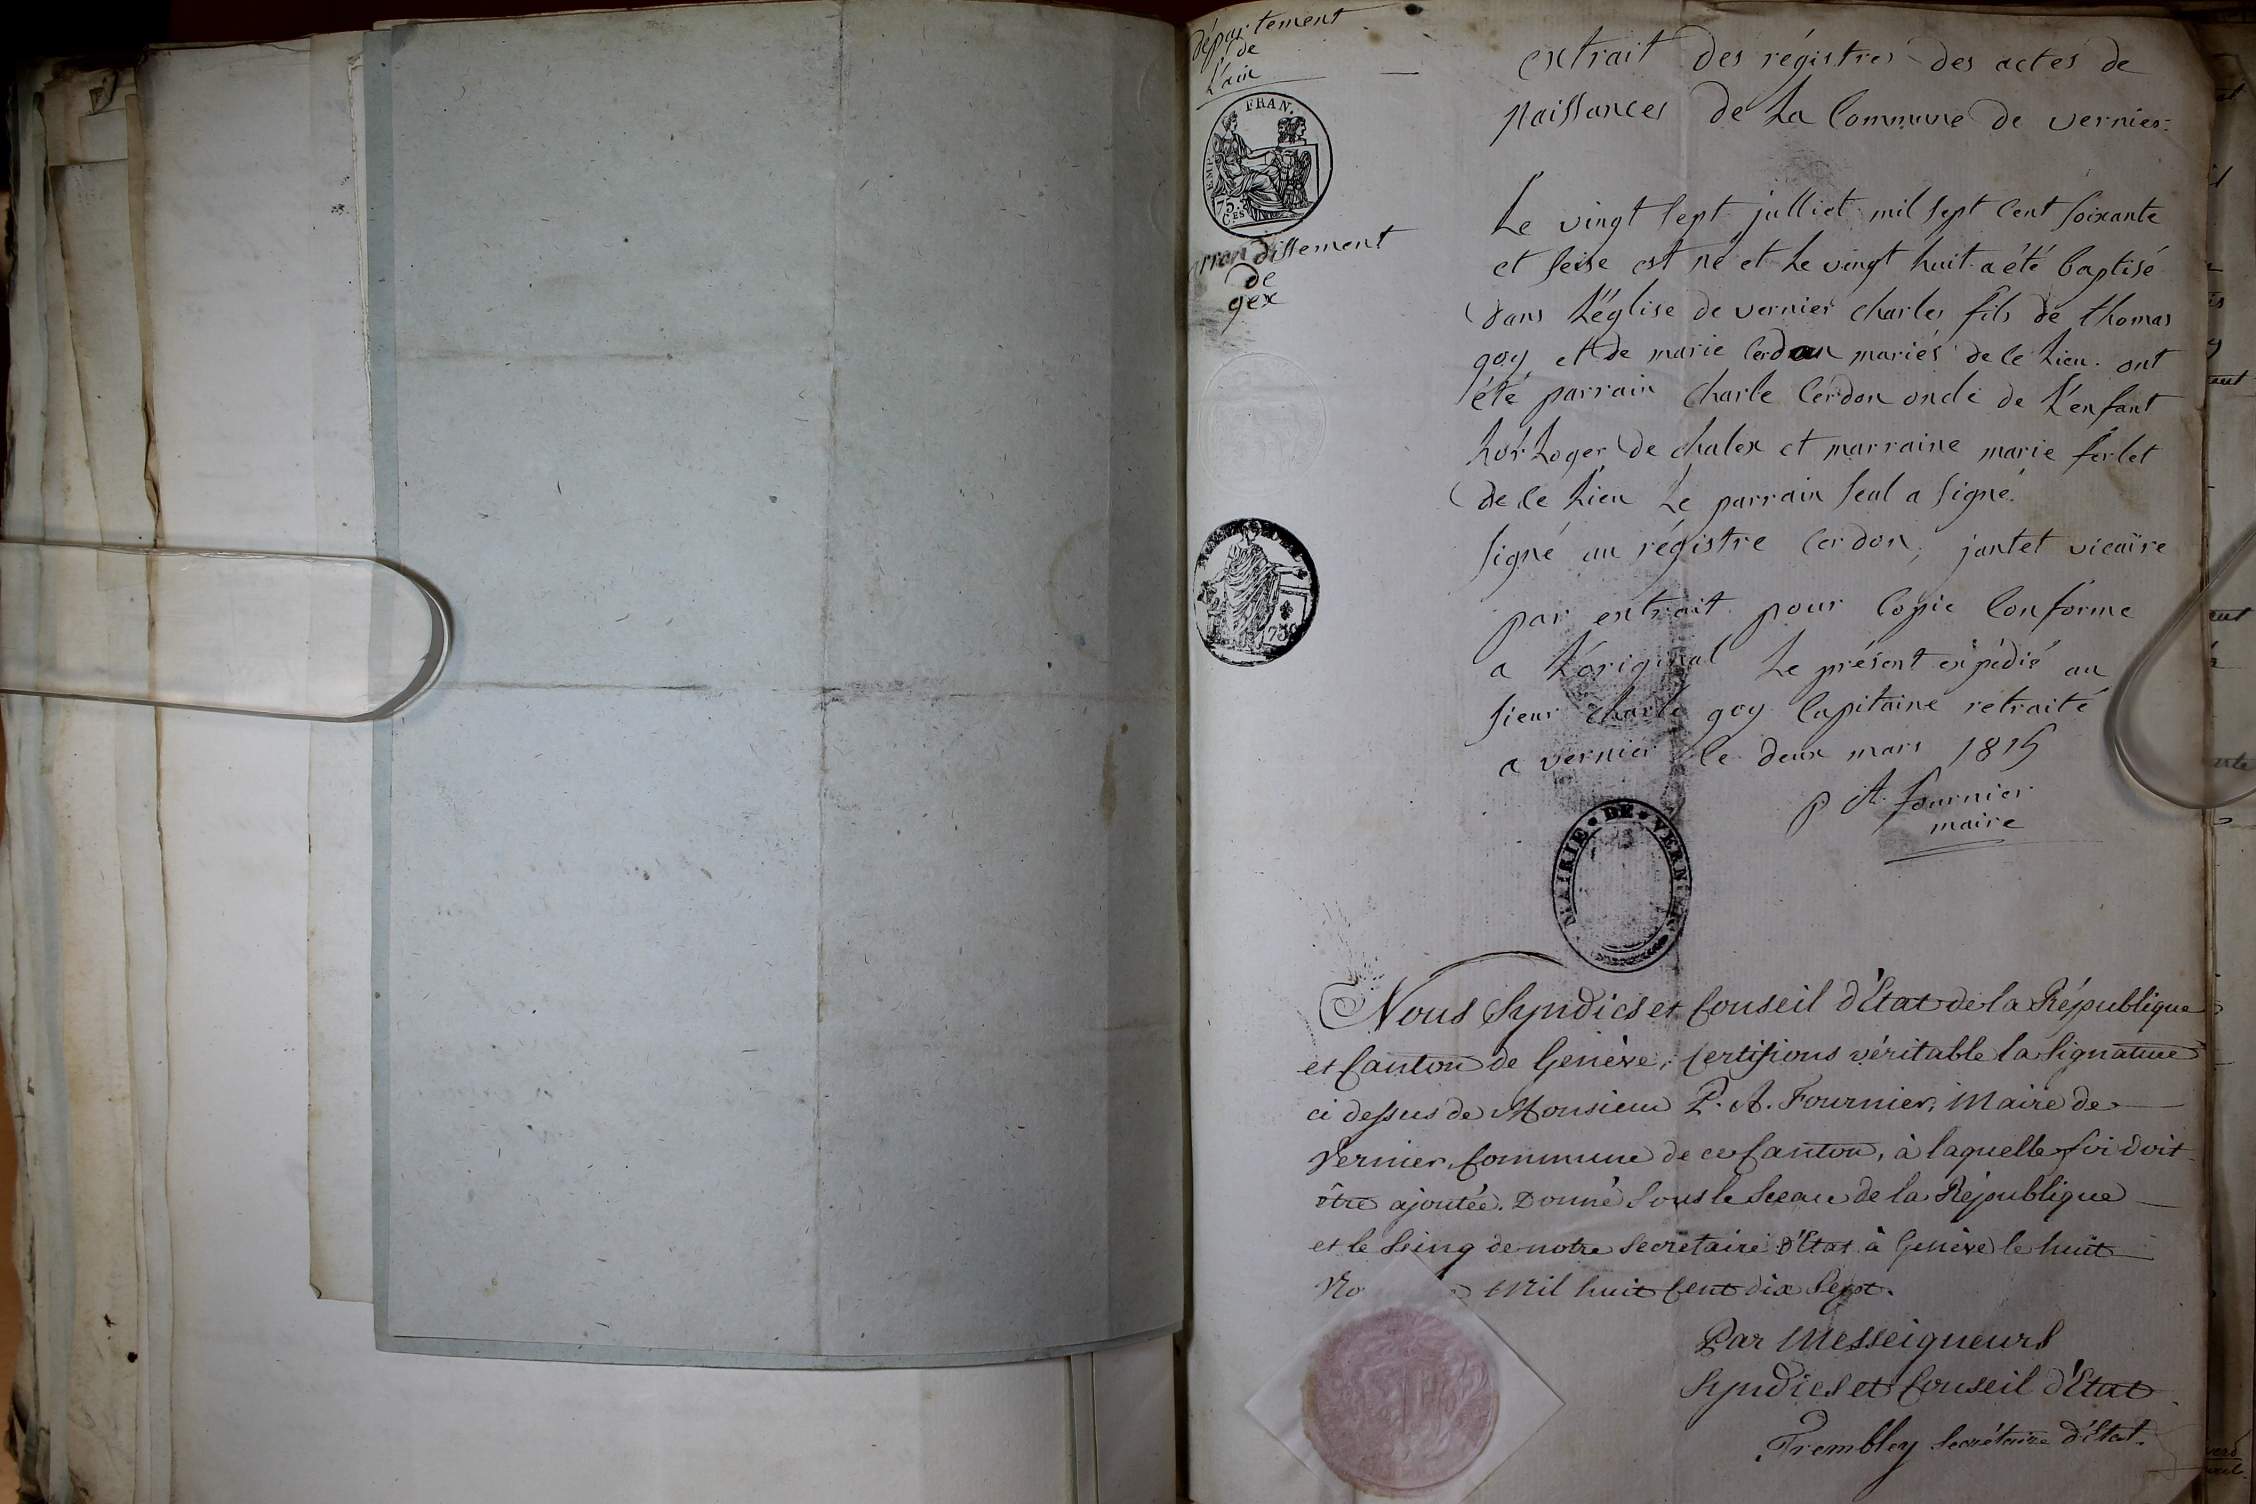 département
de
L'ain
extrait des régistres des actes de
naissances de La Commune de vernier
EMP. FRAN.
75.
CES
arrondissement
de
gex
Le vingt sept julliet mil sept cent soixante
et seise est né et Le vingt huit a été baptisé
dans L'église de vernier charles fils de thomas
goy et de marie Cerdon mariés de ce Lieu. ont
été parrain charle Cerdon oncle de L'enfant
horLoger de chalex et marraine marie ferlet
de ce Lieu Le parrain seul a signé.
signé au régistre Cerdon, jantet vicaire
par extrait pour Copie Conforme
a L'original Le présent expédié au
sieur charle goy Capitaine retraité
a vernier le deux mars 1815
p A. fournier
maire
MAIRIE * DE * VERN
Nous Syndics et Conseil d'Etat de la République
et Canton de Genève, Certifions véritable la Signature
ci dessus de Monsieur P. A. Fournier, Maire de
Vernier, Commune de ce Canton, à laquelle foi doit
être ajoutée. Donné sous le Sceau de la République
et le Seing de notre Secrétaire d'Etat à Genève le huit
No Mil huit Cent dix Sept.
Par Messeigneurs
Syndics et Conseil d'Etat
Trembley Secrétaire d'Etat.